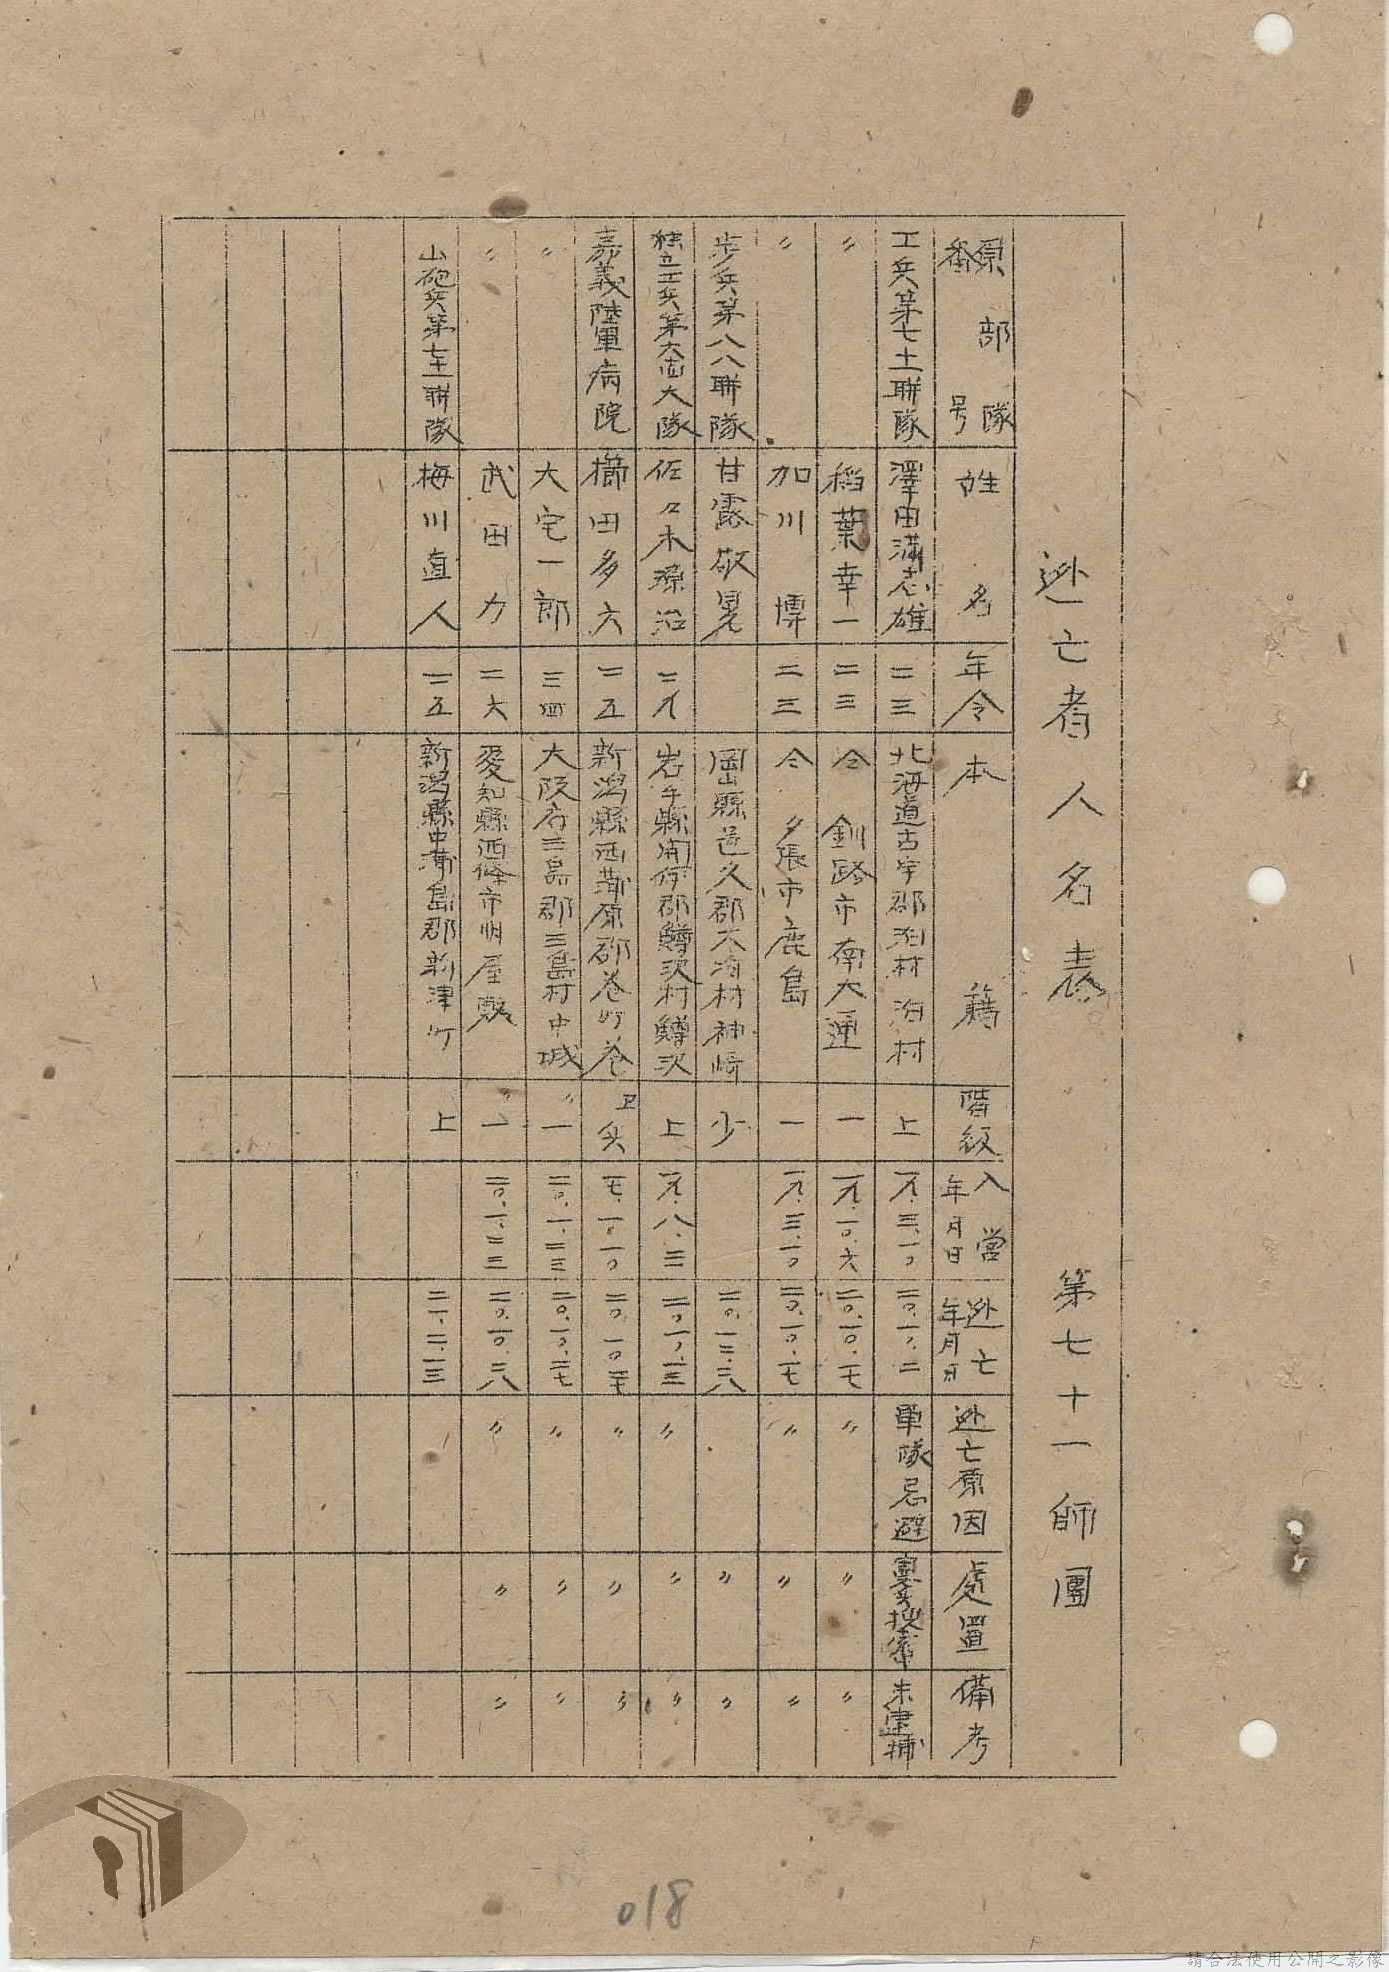 逃亡者人名表 第七十一師團
原部隊番号 姓名 年令 本籍 階級 入営年月日 逃亡年月日 逃亡原因 処置 備考
工兵第七十一聯隊 澤田満志雄 二三 北海道古宇郡泊村泊村 上 一九.三.一〇 二〇.一〇.二 軍隊忌避 憲兵捜索 未逮捕
〃 稻葉幸一 二三 仝 釧路市南大通 一 一九.一〇.六 二〇.一〇.一七 〃 〃 〃
〃 加川博 二三 仝 夕張市鹿島 一 一九.三.一〇 二〇.一〇.一七 〃 〃 〃
歩兵第八八聯隊 甘露敬晃 岡山縣邑久郡 村神崎 少 二〇.一二.二八 〃 〃
独立工兵第 大隊 佐々木源沼 二九 岩手縣 郡鱒沢村鱒沢 上 一九.八.三 二〇.一〇.一三 〃 〃 〃
嘉義陸軍病院 櫛田多六 二五 新潟縣西蒲原郡巻町巻 卫兵 一七.一.一〇 二〇.一〇.二七 〃 〃 〃
〃 大宅一郎 三四 大阪府三島郡三島村中城 〃一 二〇.一.二三 二〇.一〇.二七 〃 〃 〃
〃 武田力 二六 愛知縣西條市明屋敷 〃一 二〇.一.二三 二〇.一〇.二八 〃 〃 〃
山砲兵第七十一聯隊 梅川直人 二五 新潟縣中蒲島郡新津町 上 二一.二.一三
018
請合法使用公開之影像